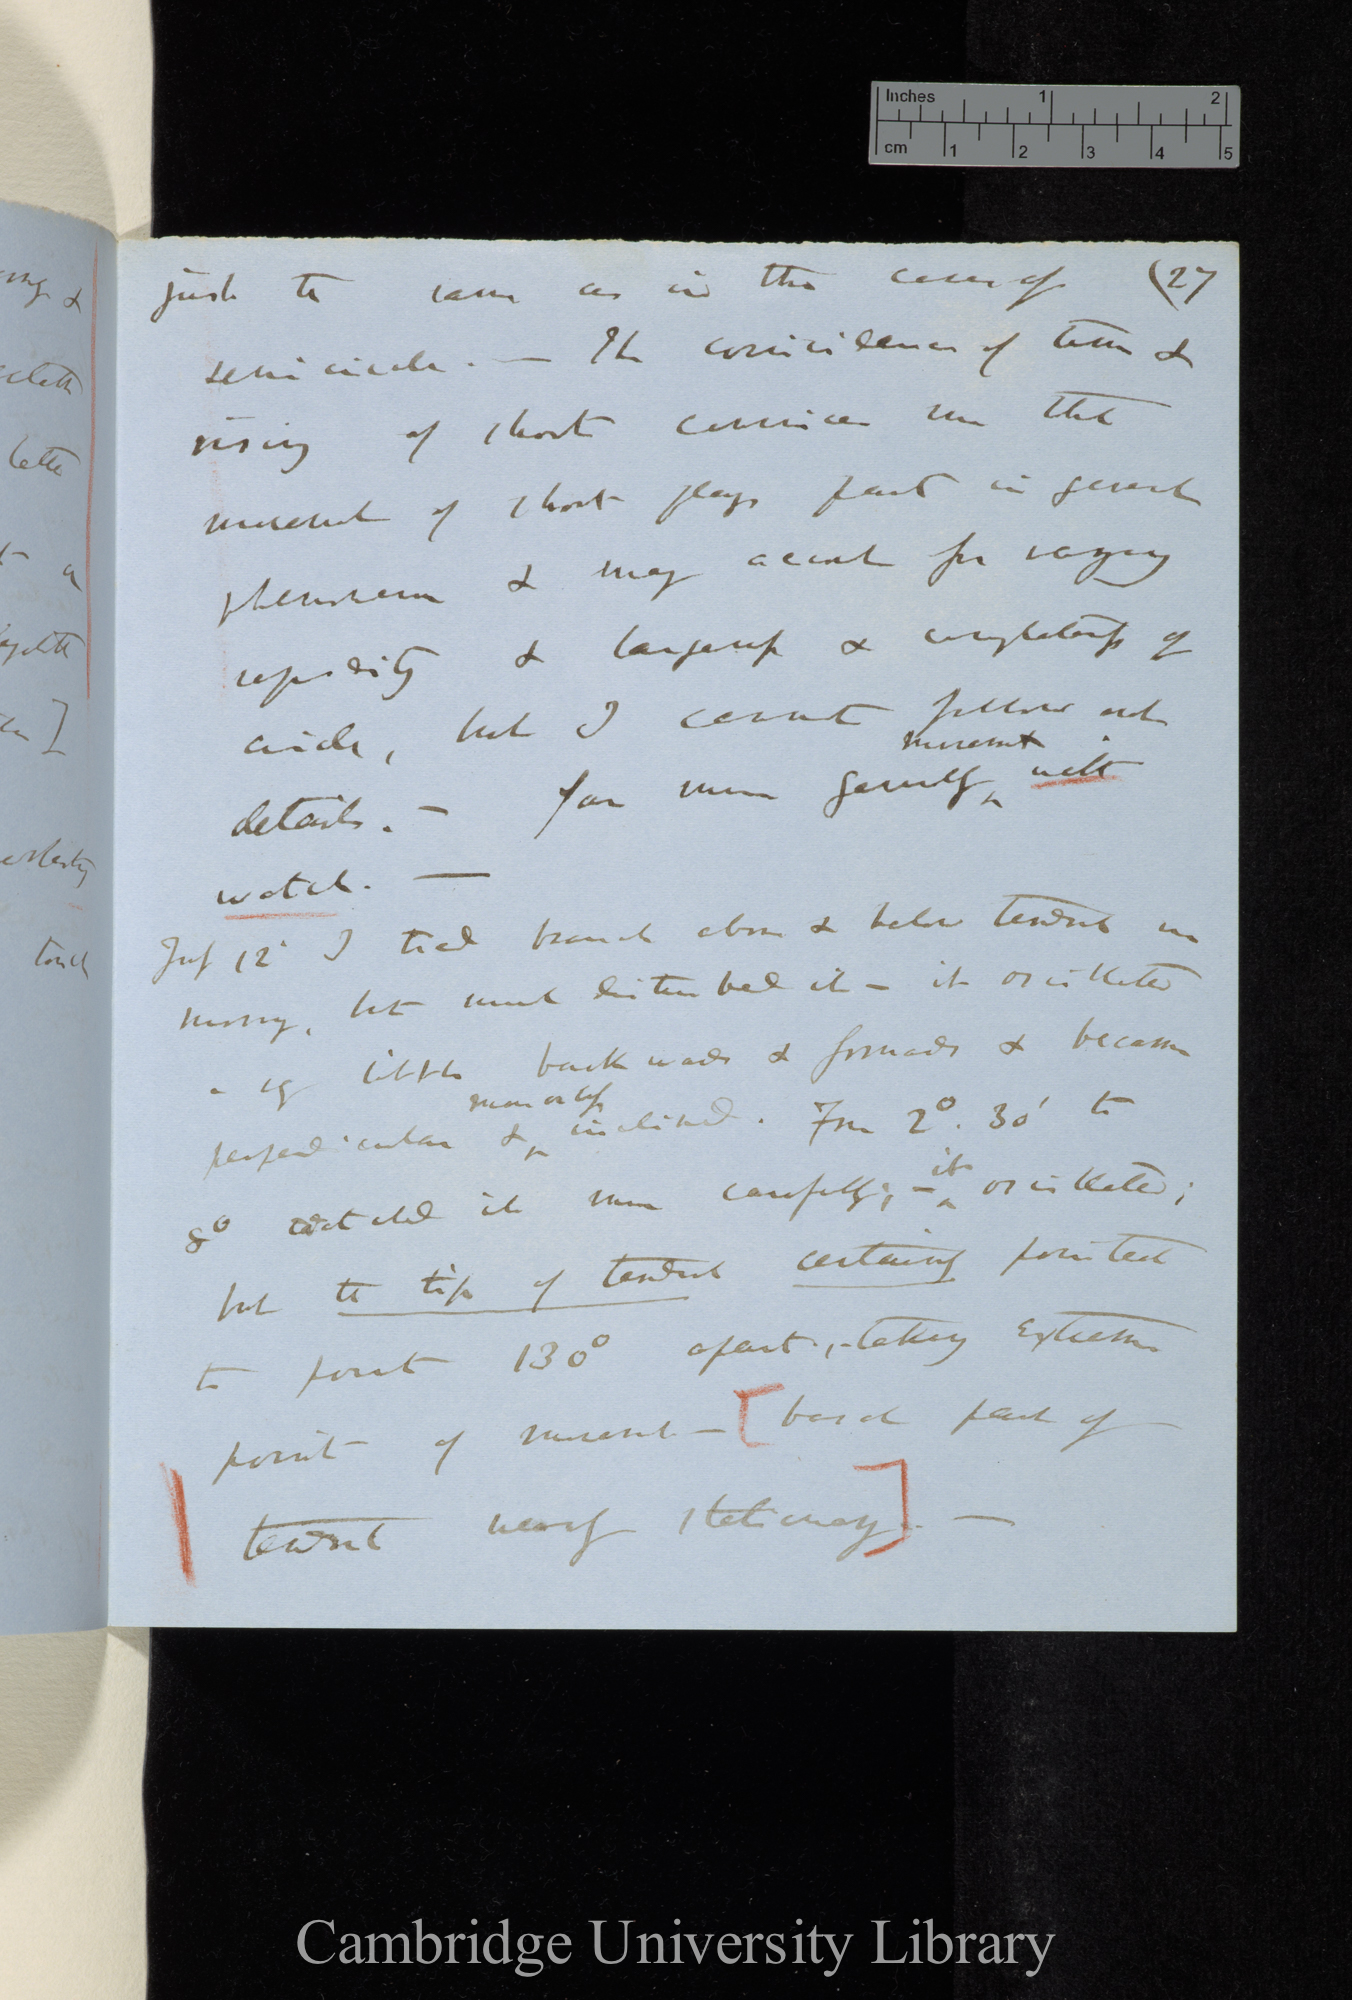 Inches 1 2
cm 1 2 3 4 5
(27
just the same as in the case of
semicircle. — The coincidence of time &
rising of shoot comes in the
movement of shoot plays part in general
phenomena & may account for varying
rapidity & largeness & completeness of
circle, but I cannot follow out
movement
details. — far more generally with
watch. —
July 12 I tied branch above & below tendril in
morning, but much disturbed it — it oscillated
a little backwards & forwards & became
more or less
perpendicular & inclined. From 2°. 30' to
it
8° watched it more carefully; — oscillated;
but the tip of tendril certainly pointed
to point 130° apart, — taking extreme
point of movement — [basal part of
tendril nearly stationary]. —
letter
a
]
touch
Cambridge University Library